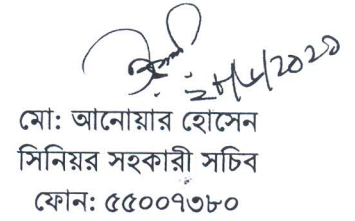 মো: আনোয়ার হোসেন
সিনিয়র সহকারী সচিব
ফোন: ৫৫০০৭৩৮০